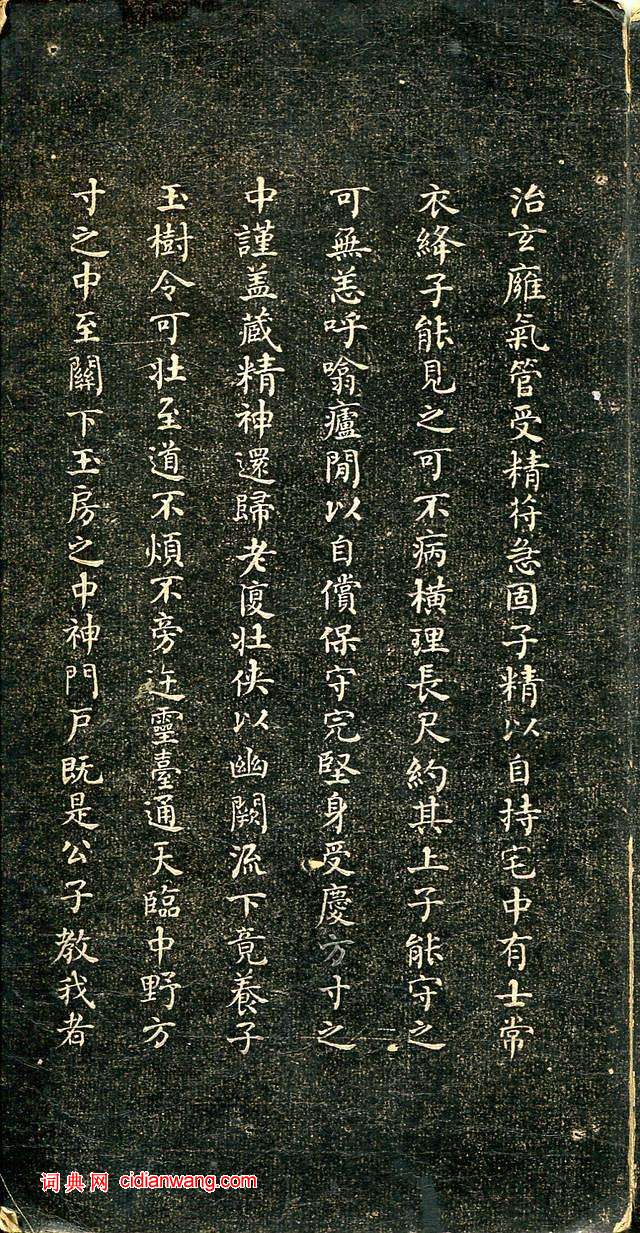 治玄廱氣管受精符急固子精以自持宅中有士常
衣絳子能見之可不病橫理長尺約其上子能守之
可無恙呼噏廬閒以自償保守完堅身受慶方寸之
中謹盖藏精神還歸老復壯俠以幽闕流下竟養子
玉樹令可壯至道不煩不旁迕靈臺通天臨中野方
寸之中至關下玉房之中神門戶既是公子教我者
词典网 cidianwang.com